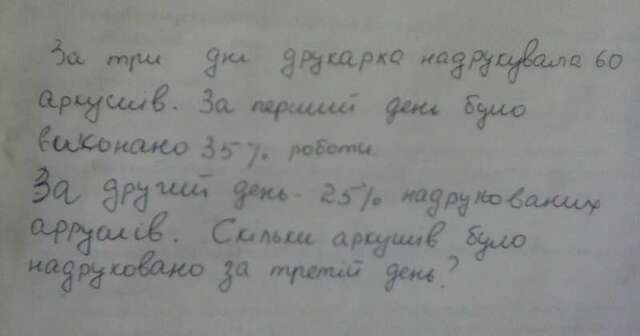 За три дні друкарка надрукувала 60
аркушів. За перший день було
виконано 35% роботи.
За другий день - 25% надрукованих
аркушів. Скільки аркушів було
надруковано за третій день?